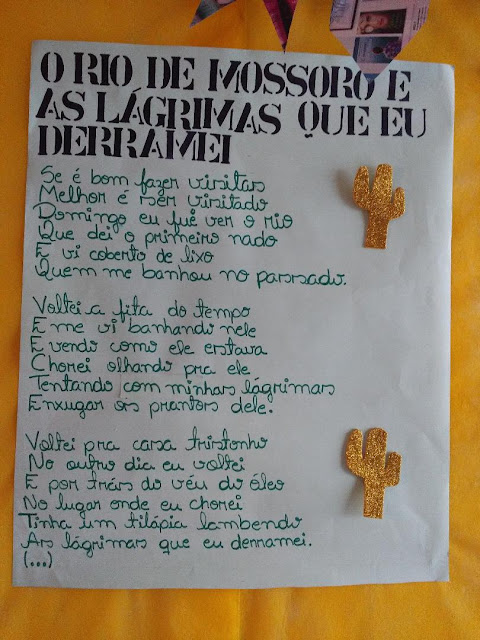 O RIO DE MOSSORO E
AS LÁGRIMAS QUE EU
DERRAMEI
Se é bom fazer visitas
Melhor é ser visitado
Domingo eu fui ver o rio
Que dei o primeiro nado
E vi coberto de lixo
Quem me banhou no passado.
Voltei a fita do tempo
E me vi banhando nele
E vendo como ele estava
Chorei olhando pra ele
Tentando com minhas lágrimas
Enxugar os prantos dele.
Voltei pra casa tristonho
No outro dia eu voltei
E por trás do véu do óleo
No lugar onde eu chorei
Tinha um tilápia lambendo
As lágrimas que eu derramei.
(...)